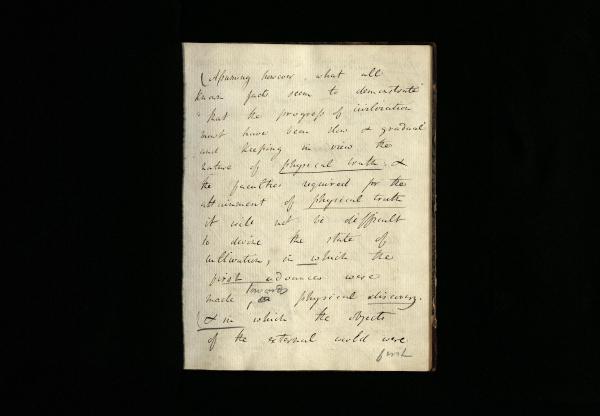 (Assuming however, what all
known facts seem to demonstrate
that the progress of civilization
must have been slow & gradual
and keeping in view the
nature of physical truth. &
the faculties required for the
attainment of physical truth
it will not be difficult
to divine the state of
cultivation, in which the
first advances were
made towards physical discovery.
(& in which the objects
of the external world were
first